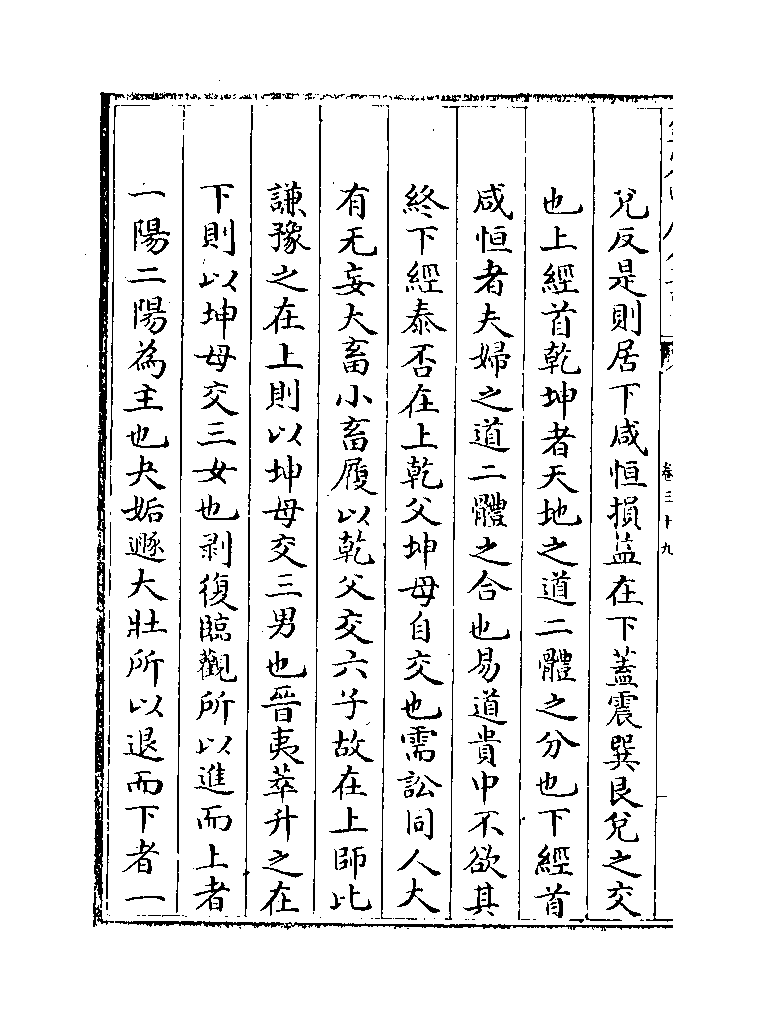 卷三十九
兌反是則居下咸恒損益在下蓋震巽艮兌之交
也上經首乾坤者天地之道二體之分也下經首
咸恒者夫婦之道二體之合也易道貴中不欲其
終下經泰否在上乾父坤母自交也需訟同人大
有无妄大畜小畜履以乾父交六子故在上師比
謙豫之在上則以坤母交三男也晉夷萃升之在
下則以坤母交三女也剥復臨觀所以進而上者
一陽二陽為主也夬姤遯大壯所以退而下者一